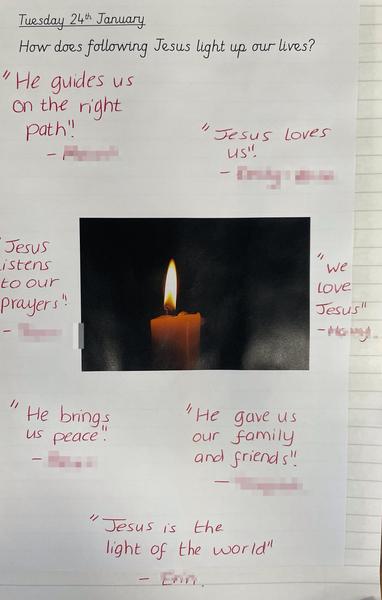 Tuesday 24th January
How does following Jesus light up our lives?
"He guides us
on the right
path"!
-
"Jesus loves
us".
-
Jesus
istens
to our
prayers"!
-
"We
love
Jesus"
-
"He brings
us peace".
-
"He gave us
our family
and friends"!
-
"Jesus is the
light of the world"
-